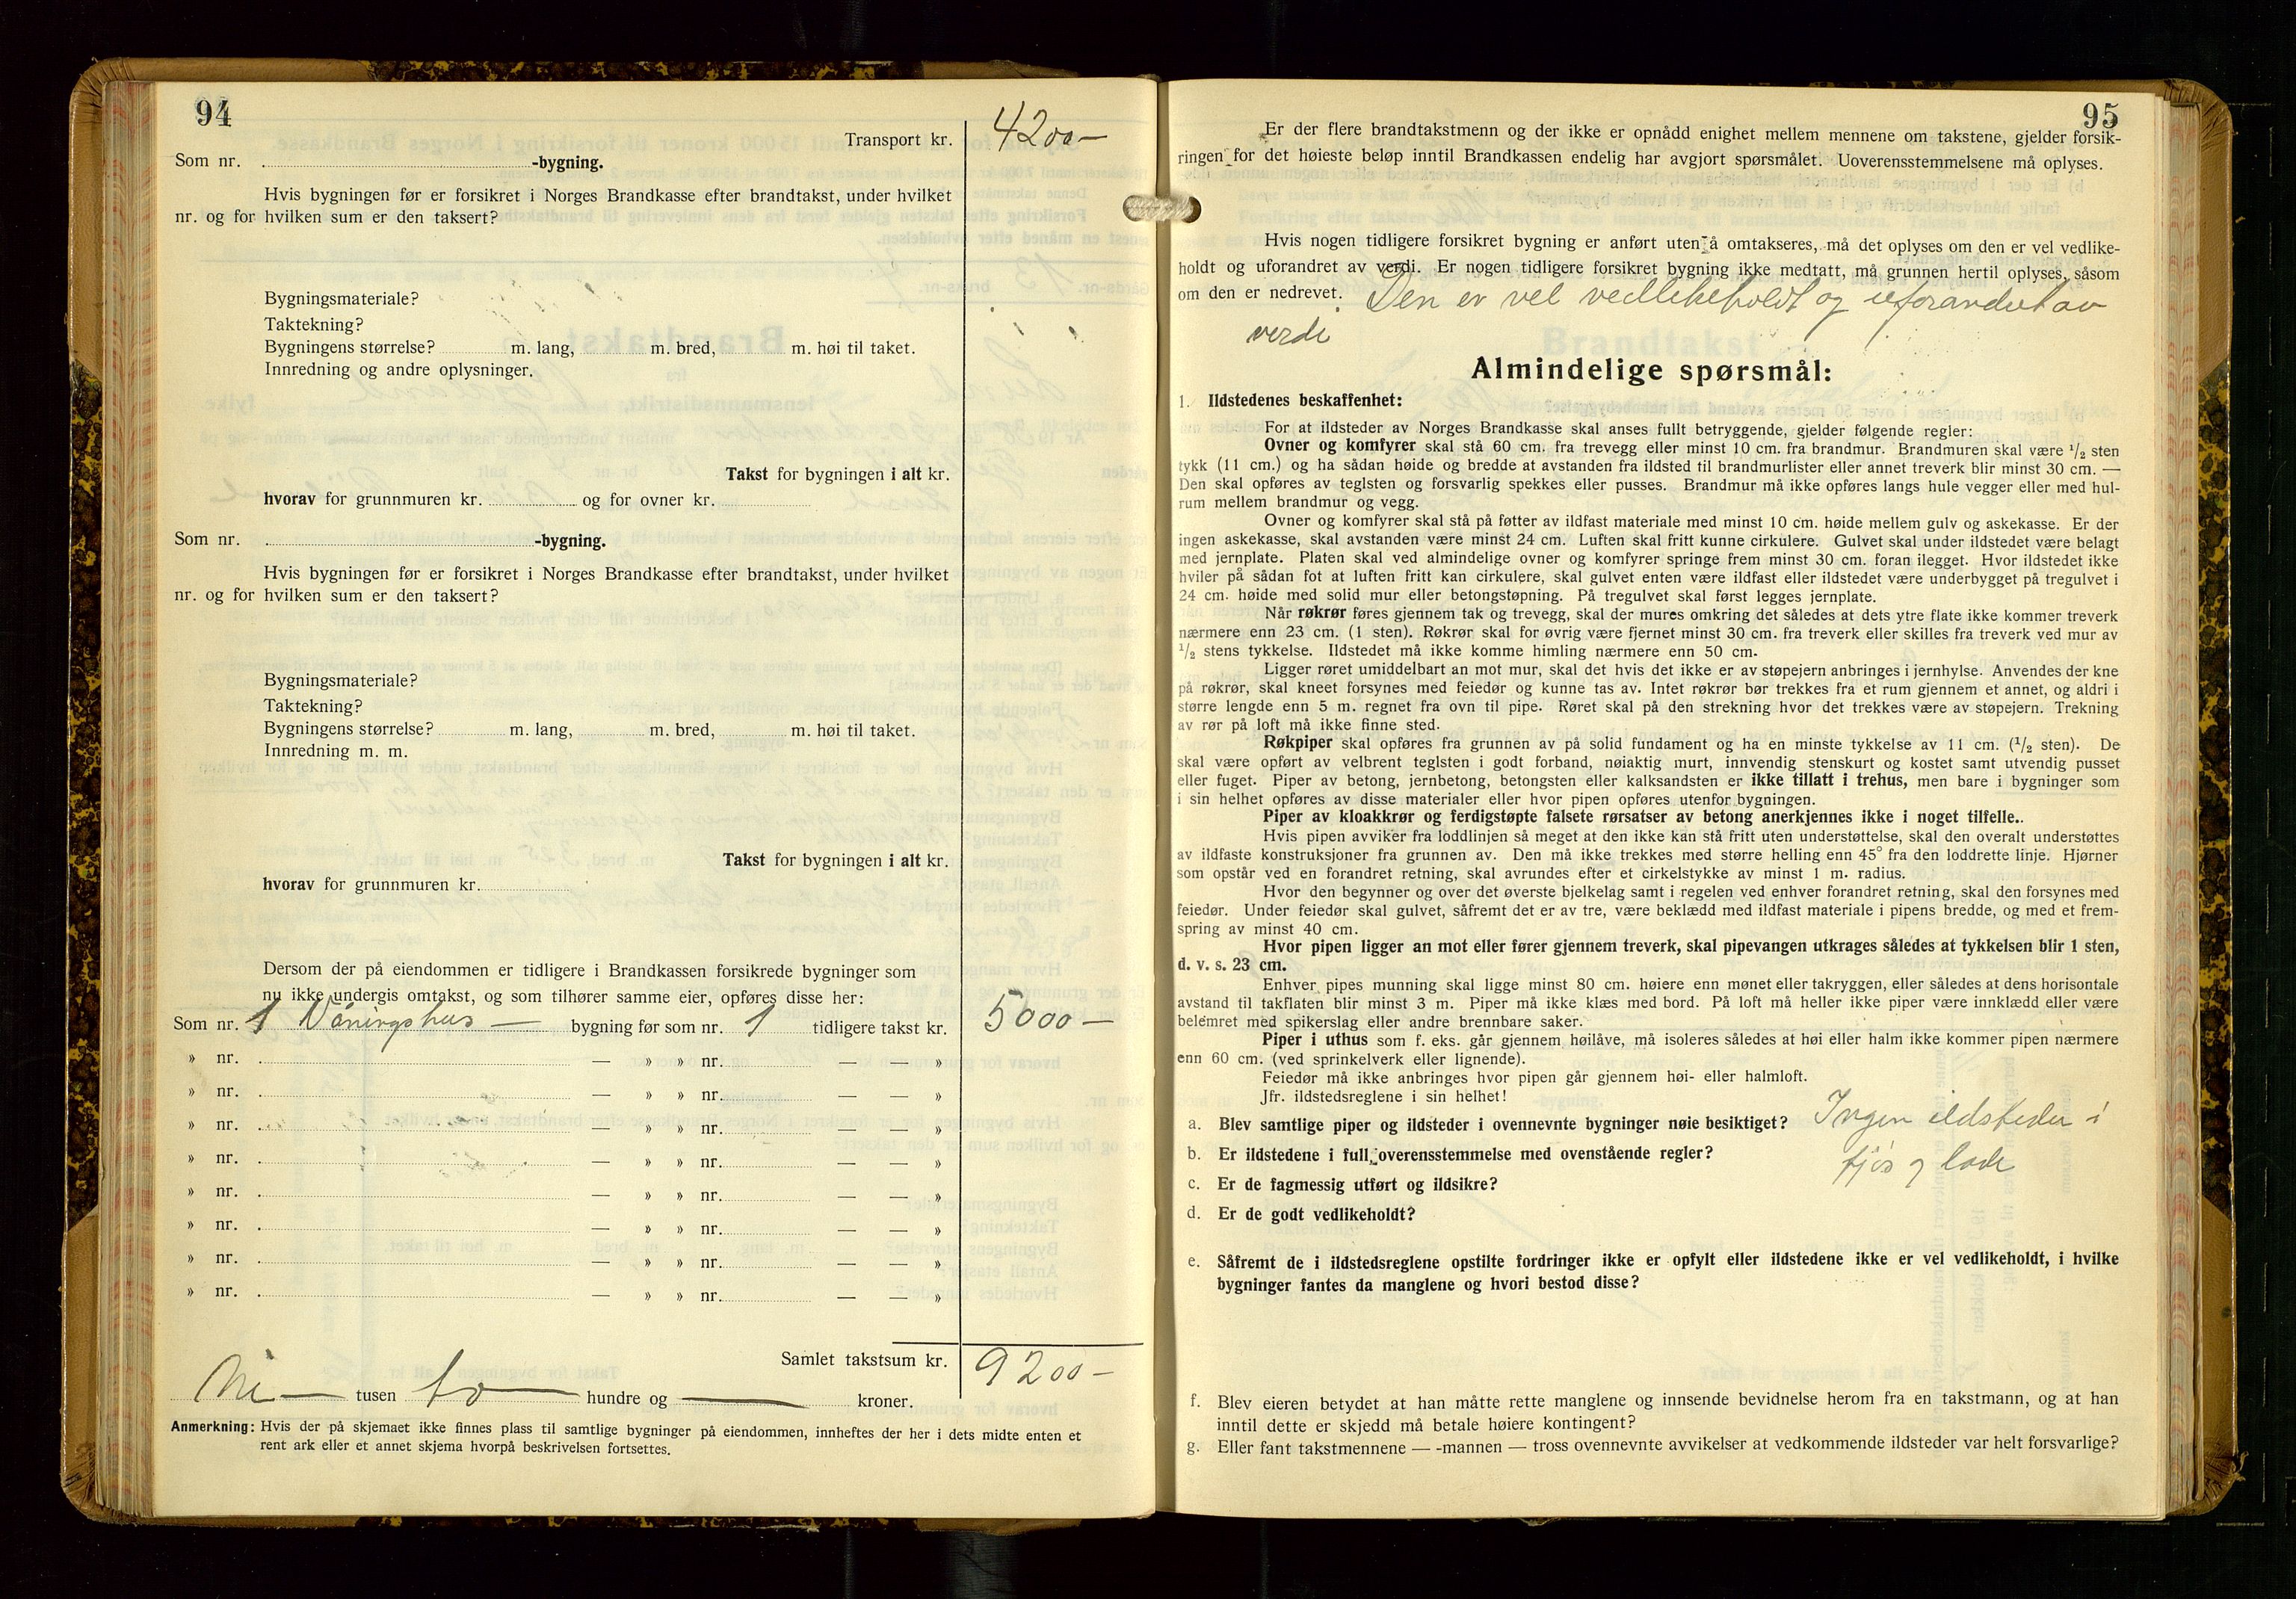 94
Transport kr. 4200–
Som nr. -bygning.
Hvis bygningen før er forsikret i Norges Brandkasse efter brandtakst, under hvilket
nr. og for hvilken sum er den taksert?
Bygningsmateriale?
Taktekning?
Bygningens størrelse? m. lang, m. bred, m. høi til taket.
Innredning og andre oplysninger.
Takst for bygningen i alt kr.
hvorav for grunnmuren kr. og for ovner kr.
Som nr. -bygning.
Hvis bygningen før er forsikret i Norges Brandkasse efter brandtakst, under hvilket
nr. og for hvilken sum er den taksert?
Bygningsmateriale?
Taktekning?
Bygningens størrelse? m. lang, m. bred, m. høi til taket.
Innredning m. m.
Takst for bygningen i alt kr.
hvorav for grunnmuren kr.
Dersom der på eiendommen er tidligere i Brandkassen forsikrede bygninger som
nu ikke undergis omtakst, og som tilhører samme eier, opføres disse her:
Som nr. 1 Våningshus — bygning før som nr. 1 tidligere takst kr. 5000 –
» nr. — » » nr. — — »
» nr. — » » nr. — — »
» nr. — » » nr. — — »
» nr. — » » nr. — — »
» nr. — » » nr. — — »
» nr. — » » nr. — — »
» nr. — » » nr. — — »
» nr. — » » nr. — — »
Samlet takstsum kr. 9200 –
Ni — tusen to — hundre og — kroner.
Anmerkning: Hvis der på skjemaet ikke finnes plass til samtlige bygninger på eiendommen, innheftes der her i dets midte enten et
rent ark eller et annet skjema hvorpå beskrivelsen fortsettes.
95
Er der flere brandtakstmenn og der ikke er opnådd enighet mellem mennene om takstene, gjelder forsik-
ringen for det høieste beløp inntil Brandkassen endelig har avgjort spørsmålet. Uoverensstemmelsene må oplyses.
Hvis nogen tidligere forsikret bygning er anført uten å omtakseres, må det oplyses om den er vel vedlike-
holdt og uforandret av verdi. Er nogen tidligere forsikret bygning ikke medtatt, må grunnen hertil oplyses, såsom
om den er nedrevet. Den er vel vedlikeholdt og uforandret av
verdi
Almindelige spørsmål:
1. Ildstedenes beskaffenhet:
For at ildsteder av Norges Brandkasse skal anses fullt betryggende, gjelder følgende regler:
Ovner og komfyrer skal stå 60 cm. fra trevegg eller minst 10 cm. fra brandmur. Brandmuren skal være 1/2 sten
tykk (11 cm.) og ha sådan høide og bredde at avstanden fra ildsted til brandmurlister eller annet treverk blir minst 30 cm. —
Den skal opføres av teglsten og forsvarlig spekkes eller pusses. Brandmur må ikke opføres langs hule vegger eller med hul-
rum mellem brandmur og vegg.
Ovner og komfyrer skal stå på føtter av ildfast materiale med minst 10 cm. høide mellem gulv og askekasse. Er der
ingen askekasse, skal avstanden være minst 24 cm. Luften skal fritt kunne cirkulere. Gulvet skal under ildstedet være belagt
med jernplate. Platen skal ved almindelige ovner og komfyrer springe frem minst 30 cm. foran ilegget. Hvor ildstedet ikke
hviler på sådan fot at luften fritt kan cirkulere, skal gulvet enten være ildfast eller ildstedet være underbygget på tregulvet i
24 cm. høide med solid mur eller betongstøpning. På tregulvet skal først legges jernplate.
Når røkrør føres gjennem tak og trevegg, skal der mures omkring det således at dets ytre flate ikke kommer treverk
nærmere enn 23 cm. (1 sten). Røkrør skal for øvrig være fjernet minst 30 cm. fra treverk eller skilles fra treverk ved mur av
1/2 stens tykkelse. Ildstedet må ikke komme himling nærmere enn 50 cm.
Ligger røret umiddelbart an mot mur, skal det hvis det ikke er av støpejern anbringes i jernhylse. Anvendes der kne
på røkrør, skal kneet forsynes med feiedør og kunne tas av. Intet røkrør bør trekkes fra et rum gjennem et annet, og aldri i
større lengde enn 5 m. regnet fra ovn til pipe. Røret skal på den strekning hvor det trekkes være av støpejern. Trekning
av rør på loft må ikke finne sted.
Røkpiper skal opføres fra grunnen av på solid fundament og ha en minste tykkelse av 11 cm. (1/2 sten). De
skal være opført av velbrent teglsten i godt forband, nøiaktig murt, innvendig stenskurt og kostet samt utvendig pusset
eller fuget. Piper av betong, jernbetong, betongsten eller kalksandsten er ikke tillatt i trehus, men bare i bygninger som
i sin helhet opføres av disse materialer eller hvor pipen opføres utenfor bygningen.
Piper av kloakkrør og ferdigstøpte falsete rørsatser av betong anerkjennes ikke i noget tilfelle.
Hvis pipen avviker fra loddlinjen så meget at den ikke kan stå fritt uten understøttelse, skal den overalt understøttes
av ildfaste konstruksjoner fra grunnen av. Den må ikke trekkes med større helling enn 45° fra den loddrette linje. Hjørner
som opstår ved en forandret retning, skal avrundes efter et cirkelstykke av minst 1 m. radius.
Hvor den begynner og over det øverste bjelkelag samt i regelen ved enhver forandret retning, skal den forsynes med
feiedør. Under feiedør skal gulvet, såfremt det er av tre, være beklædd med ildfast materiale i pipens bredde, og med et frem-
spring av minst 40 cm.
Hvor pipen ligger an mot eller fører gjennem treverk, skal pipevangen utkrages således at tykkelsen blir 1 sten,
d. v. s. 23 cm.
Enhver pipes munning skal ligge minst 80 cm. høiere enn mønet eller takryggen, eller således at dens horisontale
avstand til takflaten blir minst 3 m. Piper må ikke klæs med bord. På loft må heller ikke piper være innklædd eller være
belemret med spikerslag eller andre brennbare saker.
Piper i uthus som f. eks. går gjennem høilåve, må isoleres således at høi eller halm ikke kommer pipen nærmere
enn 60 cm. (ved sprinkelverk eller lignende).
Feiedør må ikke anbringes hvor pipen går gjennem høi- eller halmloft.
Jfr. ildstedsreglene i sin helhet!
a. Blev samtlige piper og ildsteder i ovennevnte bygninger nøie besiktiget? Ingen ildsteder i
b. Er ildstedene i full overensstemmelse med ovenstående regler? fjøs og lade
c. Er de fagmessig utført og ildsikre?
d. Er de godt vedlikeholdt?
e. Såfremt de i ildstedsreglene opstilte fordringer ikke er opfylt eller ildstedene ikke er vel vedlikeholdt, i hvilke
bygninger fantes da manglene og hvori bestod disse?
f. Blev eieren betydet at han måtte rette manglene og innsende bevidnelse herom fra en takstmann, og at han
inntil dette er skjedd må betale høiere kontingent?
g. Eller fant takstmennene — -mannen — tross ovennevnte avvikelser at vedkommende ildsteder var helt forsvarlige?